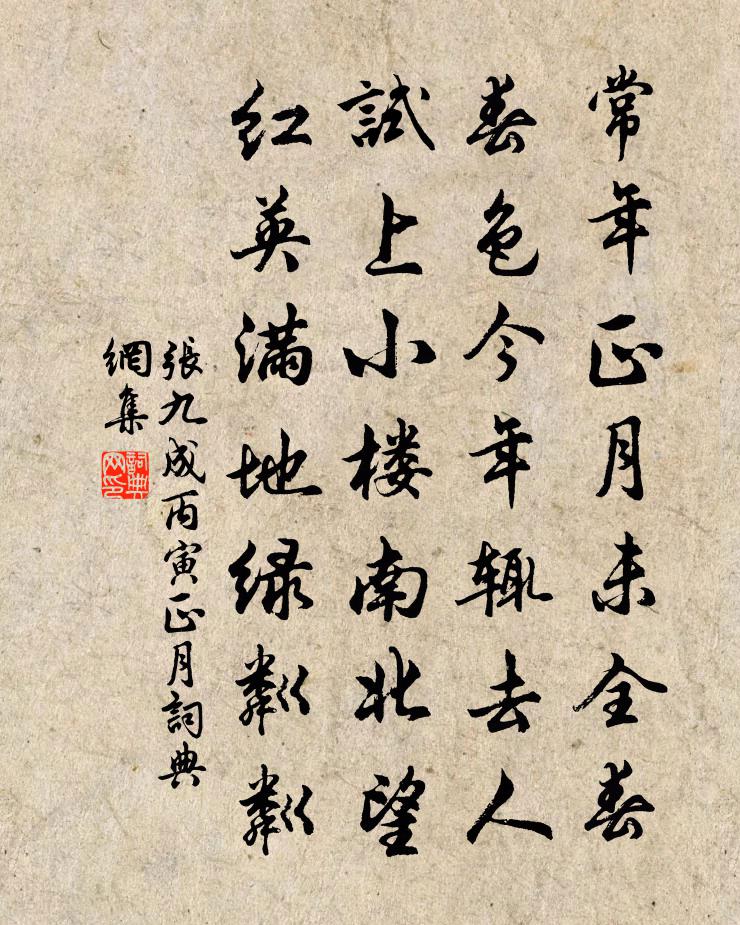 常年正月未全春
春色今年辄去人
試上小楼南北望
红英满地绿粼粼
張九成丙寅正月詞典
網集
詞典
网印